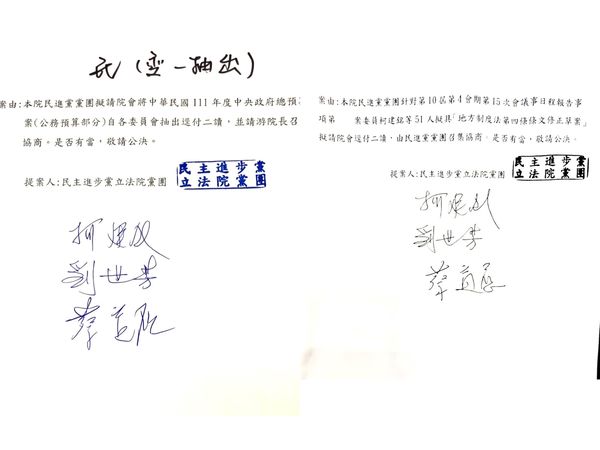 民(變一抽出)
案由:本院民進黨黨團擬請院會將中華民國111年度中央政府總預
案(公務預算部分)自各委員會抽出逕付二讀,並請游院長召
協商。是否有當,敬請公決。
提案人:民主進步黨立法院黨團
民主進步黨
立法院黨團
柯建銘
劉世芳
蔡適應
案由:本院民進黨黨團針對第10屆第4會期第15次會議事日程報告事
項第 案委員柯建銘等51人擬具「地方制度法第四條條文修正草案」
擬請院會逕付二讀,由民進黨黨團召集協商。是否有當,敬請公決。
提案人:民主進步黨立法院黨團
民主進步黨
立法院黨團
柯建銘
劉世芳
蔡適應